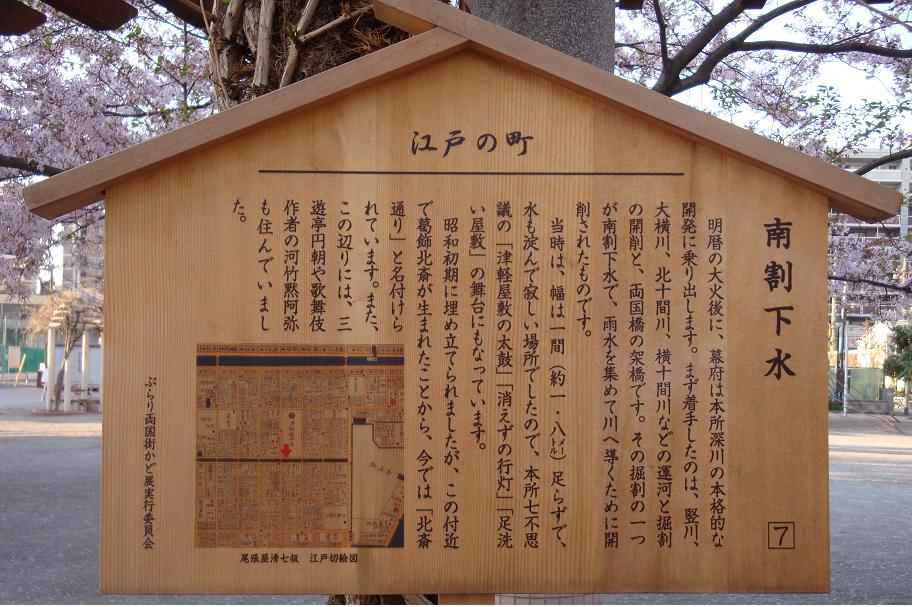 江戸の町
南割下水
7
明暦の大火後に、幕府は本所深川の本格的な
開発に乗り出します。まず着手したのは、竪川、
大横川、北十間川、横十間川などの運河と掘割
の開削と、両国橋の架橋です。その掘割の一つ
が南割下水で、雨水を集めて川へ導くために開
削されたものです。
当時は、幅は一間（約一・八㍍）足らずで、
水も淀んで寂しい場所でしたので、本所七不思
議の「津軽屋敷の太鼓」「消えずの行灯」「足洗
い屋敷」の舞台にもなっています。
昭和初期に埋め立てられましたが、この付近
で葛飾北斎が生まれたことから、今では「北斎
通り」と名付けら
れています。また、
この辺りには、三
遊亭円朝や歌舞伎
作者の河竹黙阿弥
も住んでいまし
た。
尾張屋清七板 江戸切絵図
ぶらり両国街かど展実行委員会